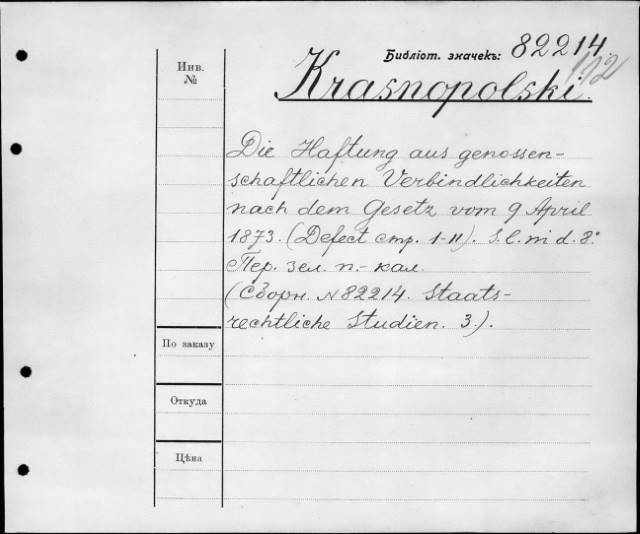 Инв.
№
Библіот. значекъ: 82214
112
Krasnopolski.
Die Haftung aus genossen-
schaftlichen Verbindlichkeiten
nach dem Gesetz vom 9 April
1873. (Defect стр. 1-11). S. l. ni d. 8°
Пер. зел. п.-кал.
(Сборн. N 82214. Staats-
rechtliche Studien. 3.).
По заказу
Откуда
Цѣна